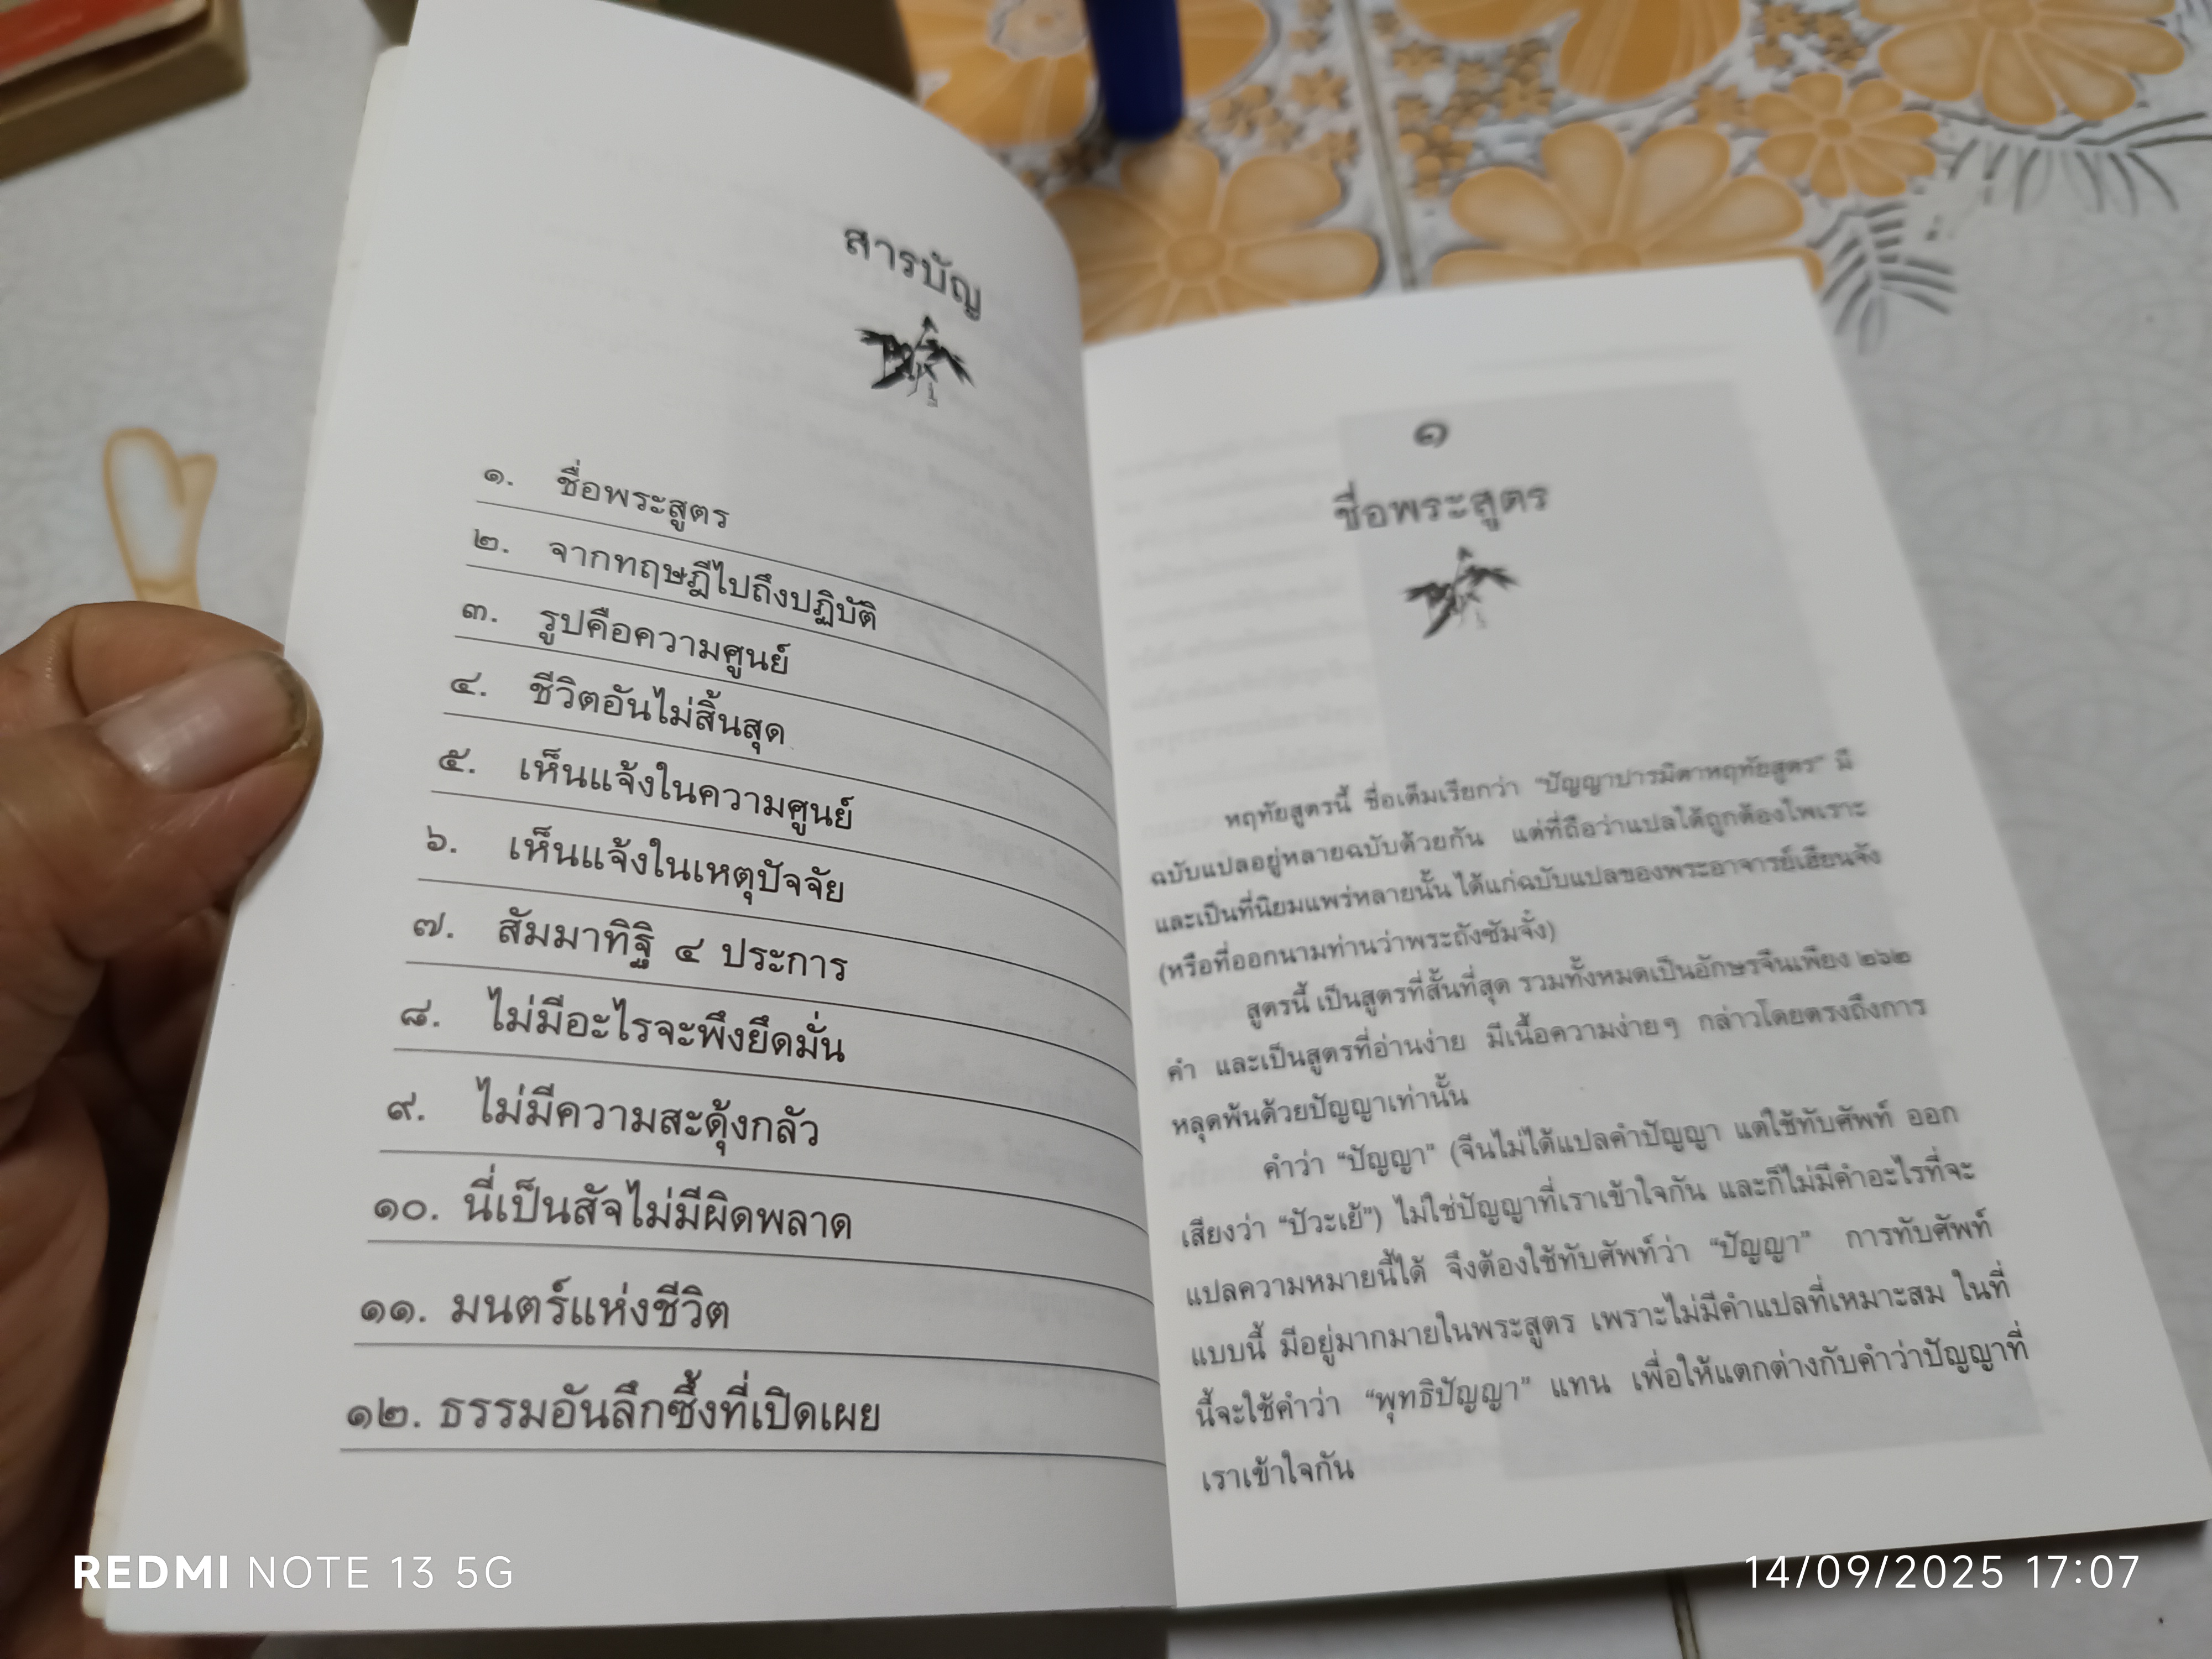 สารบัญ
๑. ชื่อพระสูตร
๒. จากทฤษฎีไปถึงปฏิบัติ
๓. รูปคือความศูนย์
๔. ชีวิตอันไม่สิ้นสุด
๕. เห็นแจ้งในความศูนย์
๖. เห็นแจ้งในเหตุปัจจัย
๗. สัมมาทิฐิ ๔ ประการ
๘. ไม่มีอะไรจะพึงยึดมั่น
๙. ไม่มีความสะดุ้งกลัว
๑๐. นี่เป็นสัจไม่มีผิดพลาด
๑๑. มนตร์แห่งชีวิต
๑๒. ธรรมอันลึกซึ้งที่เปิดเผย
๑
ชื่อพระสูตร
หฤทัยสูตรนี้ ชื่อเต็มเรียกว่า “ปัญญาปารมิตาหฤทัยสูตร” มี
ฉบับแปลอยู่หลายฉบับด้วยกัน แต่ที่ถือว่าแปลได้ถูกต้องไพเราะ
และเป็นที่นิยมแพร่หลายนั้น ได้แก่ฉบับแปลของพระอาจารย์เฮียนจัง
(หรือที่ออกนามท่านว่าพระถังซัมจั๋ง)
สูตรนี้ เป็นสูตรที่สั้นที่สุด รวมทั้งหมดเป็นอักษรจีนเพียง ๒๖๒
คำ และเป็นสูตรที่อ่านง่าย มีเนื้อความง่ายๆ กล่าวโดยตรงถึงการ
หลุดพ้นด้วยปัญญาเท่านั้น
คำว่า “ปัญญา” (จีนไม่ได้แปลคำปัญญา แต่ใช้ทับศัพท์ ออก
เสียงว่า “ปัวะเย้”) ไม่ใช่ปัญญาที่เราเข้าใจกัน และก็ไม่มีคำอะไรที่จะ
แปลความหมายนี้ได้ จึงต้องใช้ทับศัพท์ว่า “ปัญญา” การทับศัพท์
แบบนี้ มีอยู่มากมายในพระสูตร เพราะไม่มีคำแปลที่เหมาะสม ในที่
นี้จะใช้คำว่า “พุทธิปัญญา” แทน เพื่อให้แตกต่างกับคำว่าปัญญาที่
เราเข้าใจกัน
REDMI NOTE 13 5G
14/09/2025 17:07